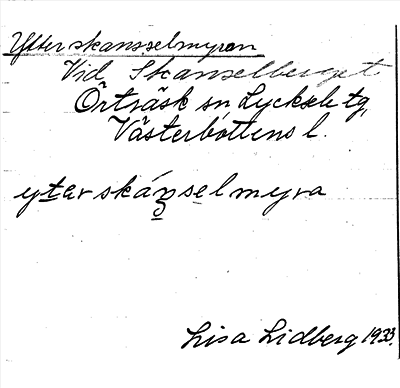 Ytterskansselmyran
Vid Skanselberget
Örträsk sn Lycksele tg,
Västerbottens l.
yterskánselmyra
Lisa Lidberg 1933.